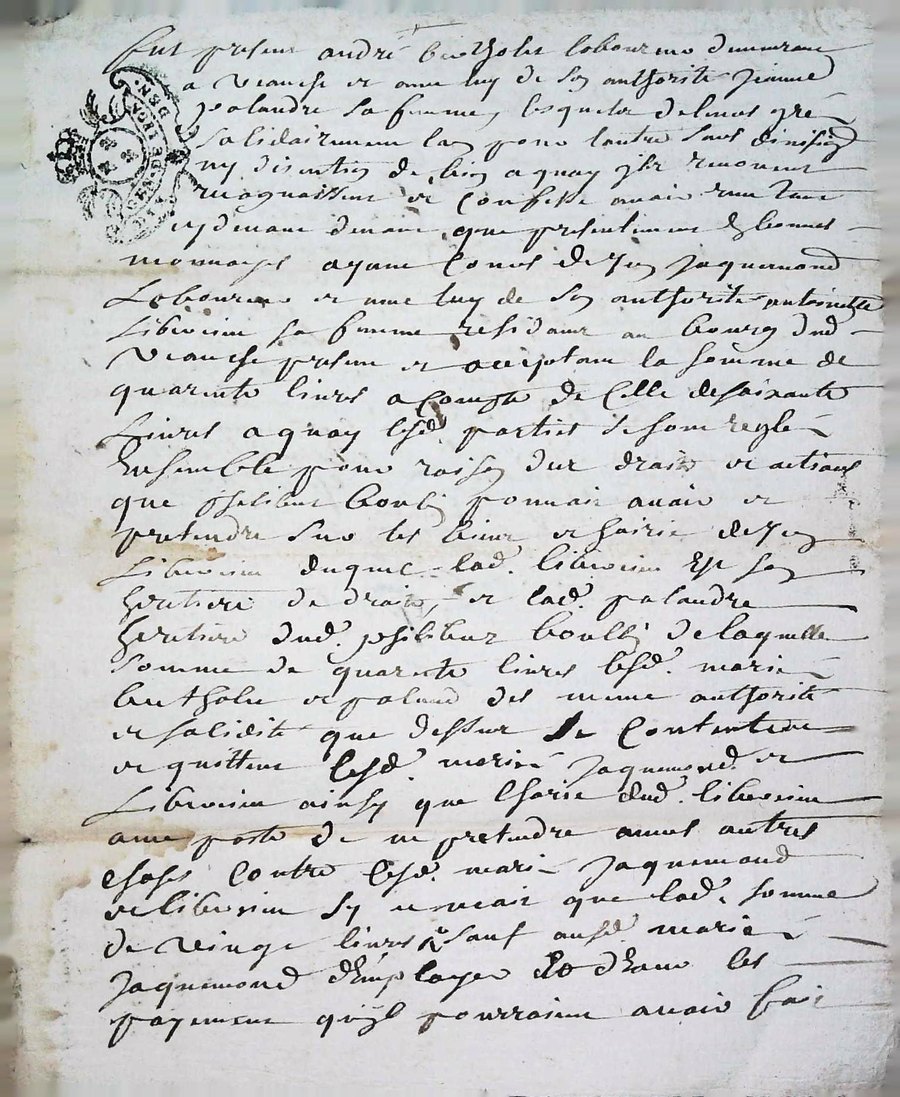 fut présent andré bertholet laboureur demeurant
a veauche et avec luy de son authorité Jeanne
palandre sa femme, lesquels de leurs gré
salidairement lun pour lautre sans division
ny discution de bien a quoy ils renoncent
recognoissent et confessé avoir reçu tant
cydevant que presentement en bonnes
monnoyes ayant cours de Jean Jaquemond
Laboureur et avec luy de son authorité antoinette
Libercier sa femme residant au bourg dud
veauche present et aceptant la somme de
quarente livres a compte de Celle desoixante
Livres a quoy lesd. parties se sont reglé
Ensemble pour raison dux droits et actions
que philibert boulli pouvait avoir et
pretendre sur les biens et hoirie de Jean
Libercier duquel lad. libercier Est son
heritiere de droit, et lad. palandre
heritiere dud. philibert boulli de laquelle
somme de quarente livres lesd. marié
bertholet et paland des meme authorité
et salidité que dessus se contentent
et quittent lesd. mariés Jaquemond et
Libercier ainsy que lhoirie dud. libercier
avec pacte de ne pretendre aucuns autres
choses contre lesd. mariés Jaquemond
et libercier sy ce n'est que lad. somme
de vingt livres sauf ausd. mariés
Jaquemond d'Employer les
payement qu'ils pourroient avoir fait
GEN. DE LYON